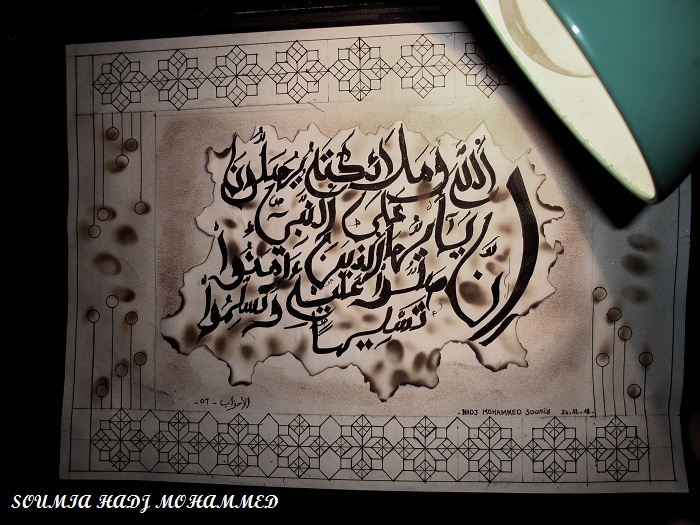 إِنَّ اللَّهَ وَمَلَائِكَتَهُ يُصَلُّونَ
عَلَى النَّبِيِّ
يَأَيُّهَا الَّذِينَ ءَامَنُوا
صَلُّوا عَلَيْهِ وَسَلِّمُوا
تَسْلِيمًا
الأحزاب - ٥٦ -
- HADJ MOHAMMED Soumia
SOUMIA HADJ MOHAMMED